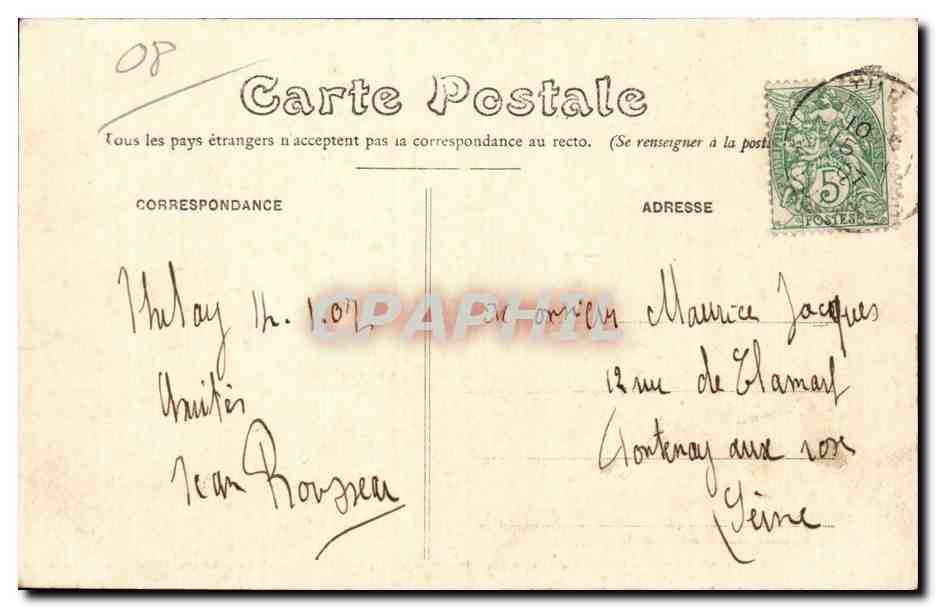 08
Carte Postale
Tous les pays étrangers n'acceptent pas la correspondance au recto. (Se renseigner à la poste
CORRESPONDANCE
ADRESSE
10
15
5
POSTES
CPAPHIL
Thelay 14.1.07
Amitiés
Jean Rousseau
Monsieur Maurice Jacques
12 rue de Clamart
Fontenay aux rose
Seine